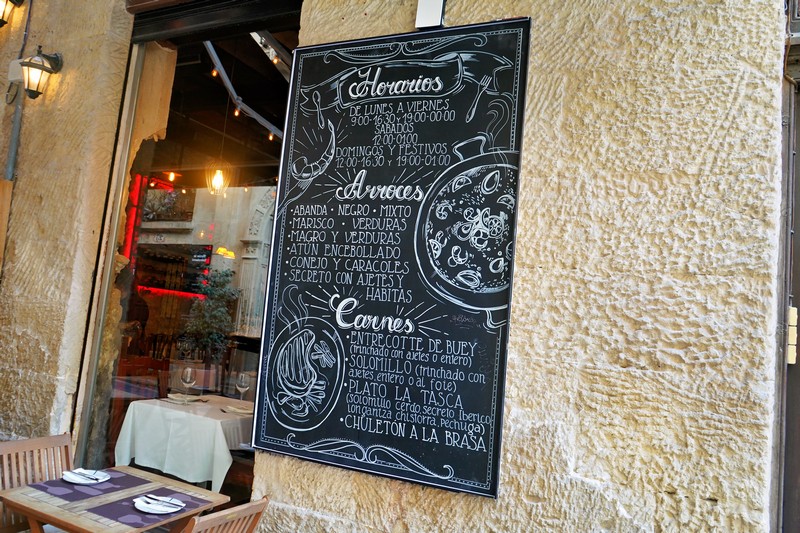 Horarios
DE LUNES A VIERNES
9:00-16:30 y 19:00-00:00
SABADOS
12:00-01:00
DOMINGOS Y FESTIVOS
12:00-16:30 y 19:00-01:00
Arroces
•ABANDA • NEGRO • MIXTO
•MARISCO • VERDURAS
•MAGRO Y VERDURAS
•ATÚN ENCEBOLLADO
•CONEJO Y CARACOLES
•SECRETO CON AJETES Y
HABITAS
Carnes
•ENTRECOTTE DE BUEY
(trinchado con ajetes o entero)
•SOLOMILLO (trinchado con
ajetes entero o al foie)
•PLATO LA TASCA
(solomillo cerdo, secreto iberico
longaniza, chistorra, pechuga)
•CHULETÓN A LA BRASA